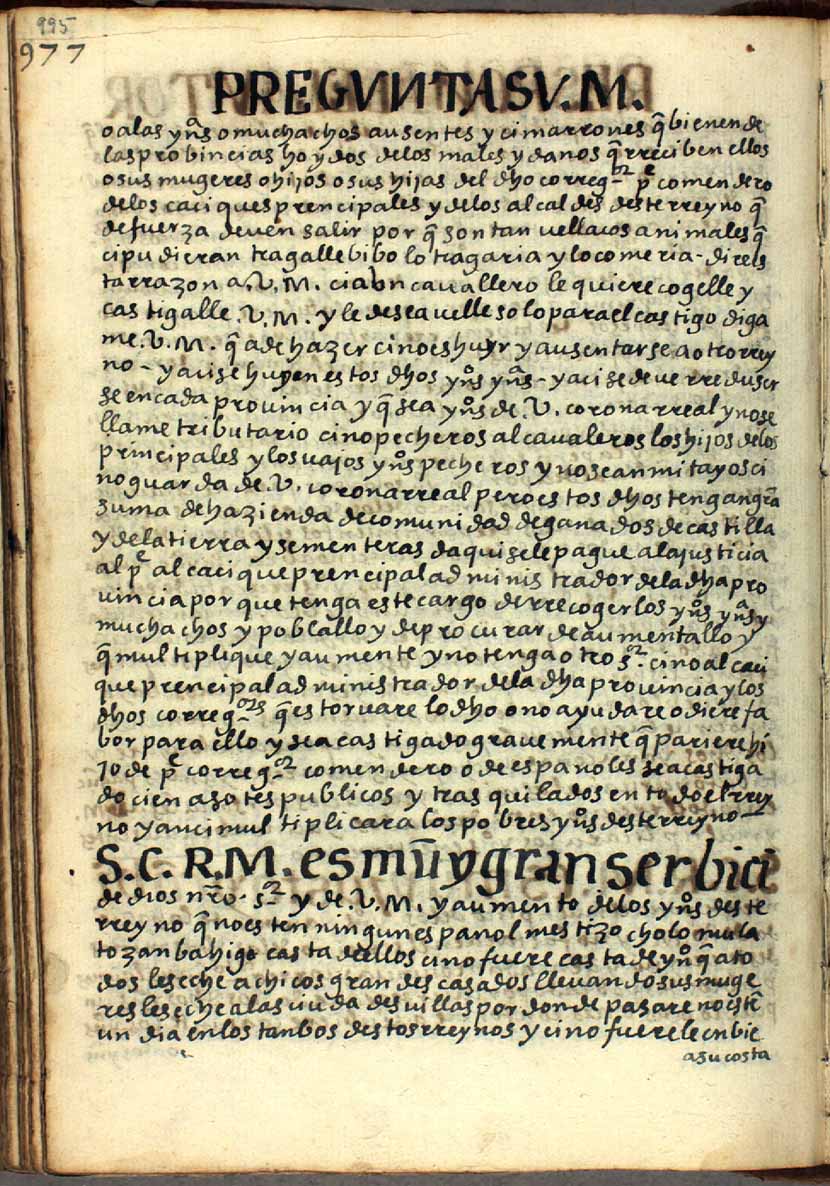 995
977
PREGVNTA SV. M.
o a las yn͠s o muchachos ausentes y cimarrones q̃ bienen de
las probincias hoydos de los males y danos q̃ rreciben ellos
o sus mugeres o hijos o sus hijas del dho correg.or p.e comendero
de los caciques prencipales y de los alcaldes deste rreyno q̃
de fuerza deven salir por q̃ son tan vellacos animales q̃
ci pudieran tragalle bibo lo tragaria y lo comeria - direis
tarrazon a .V. M. ci a un cavallero le quiere cogelle y
castigalle .V. M. y le desea velle solo para el castigo diga
me .V. M. q̃ a de hazer cino es huyr y ausentarse a otro rrey
no - y aci se huyen estos dhos yn͠os yn͠as - y aci se deve rreduser
se en cada provincia y q̃ sea yn͠os de .V. corona rreal y no se
llame tributario cino pecheros al cavaleros los hijos de los
principales y los vajos yn͠os pecheros y no sean mitayos ci
no guarda de .V. corona rreal pero estos dhos tengan gra
suma de hazienda de comunidad de ganados de castilla
y de la tierra y sementeras daqui se le pague a la justicia
al p.e al cacique prencipal administrador de la dha pro
vincia por que tenga este cargo de rrecoger los yn͠os yn͠as y
muchachos y poblallo y de procurar de aumentallo y
q̃ multiplique y aumente y no tenga otro s.or cino al caci
que prencipal administrador de la dha provincia y los
dhos correg.ors q̃ estorvare lo dho o no ayudare o diere fa
bor para ello y sea castigado gravemente q̃ pariere hi
jo de p.e correg.or comendero o de espanoles sea castiga
do cien asotes publicos y trasquilados en todo el rrey
no y anci multiplicara los pobres yn͠os deste rreyno -
S. C. R. M. es mūy gran serbici
de dios nr͠o s.or y de .V. M. y aumento de los yn͠os deste
rreyno q̃ no esten ningun espanol mestizo cholo mula
to zanbahigo casta dellos cino fuere casta de yn͠o q̃ a to
dos les eche a chicos grandes casados llevando sus muge
res les eche a las ciudades villas por donde pasare no estē
un dia en los tanbos destos rreynos y cino fuere le enbie
a su costa